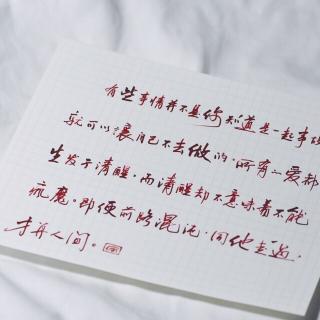 有些事情并不是你知道是一起事故
就可以讓自己不去做的.所有的爱都
生发于清醒.而清醒却不意味着不能
疯魔。即便前路混沌.同他走过.
才算人间。